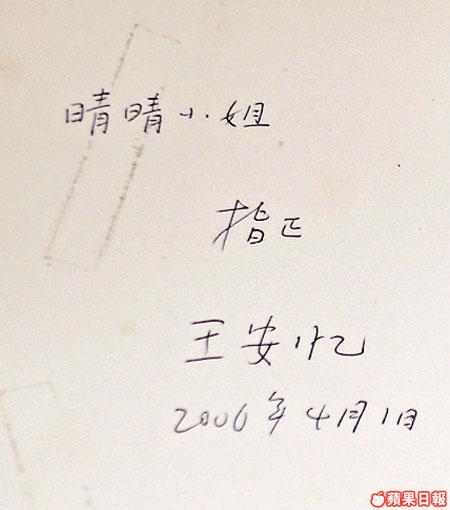 晴晴小姐
指正
王安忆
2006年4月1日
蘋果日報